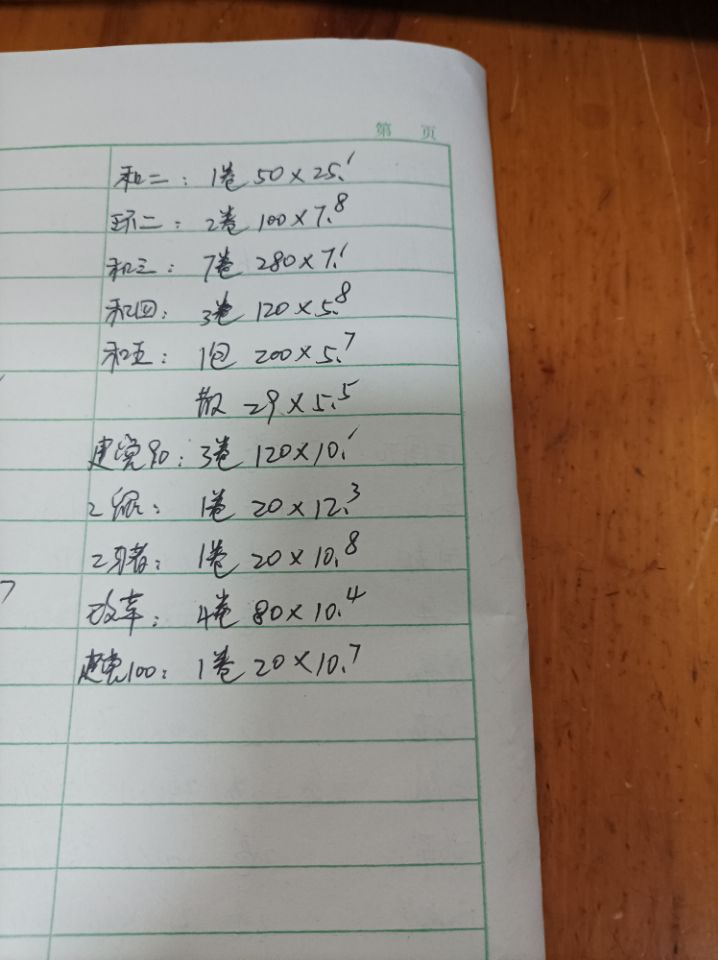 第 页
和二：1卷 50×25.1
环二：2卷 100×7.8
和三：7卷 280×7.1
和四：3卷 120×5.8
和五：1包 200×5.7
散 29×5.5
建党90：3卷 120×10.1
2银：1卷 20×12.3
2：1卷 20×10.8
改革：4卷 80×10.4
建党100：1卷 20×10.7
7